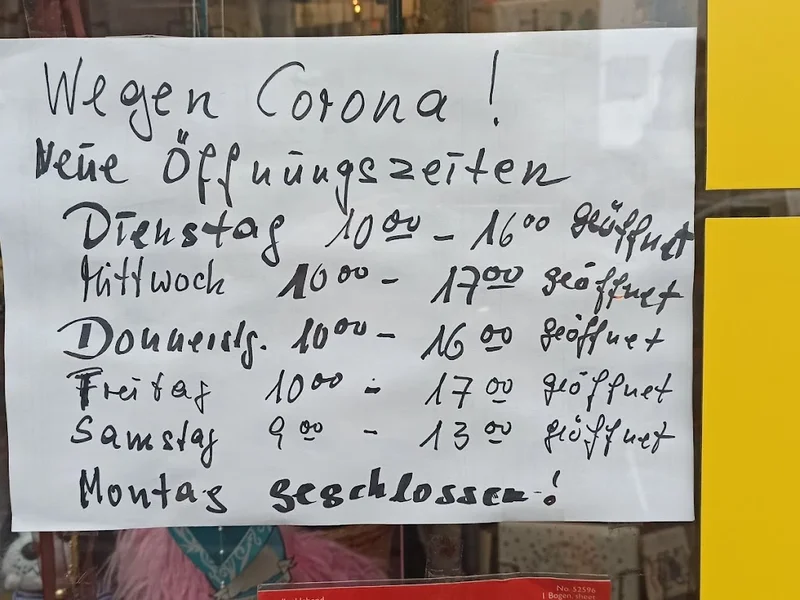 Wegen Corona!
Neue Öffnungszeiten
Dienstag 10 00 - 16 00 geöffnet
Mittwoch 10 00 - 17 00 geöffnet
Donnerstg. 10 00 - 16 00 geöffnet
Freitag 10 00 - 17 00 geöffnet
Samstag 9 00 - 13 00 geöffnet
Montag geschlossen!
No. 52596
1 Bogen, sheet